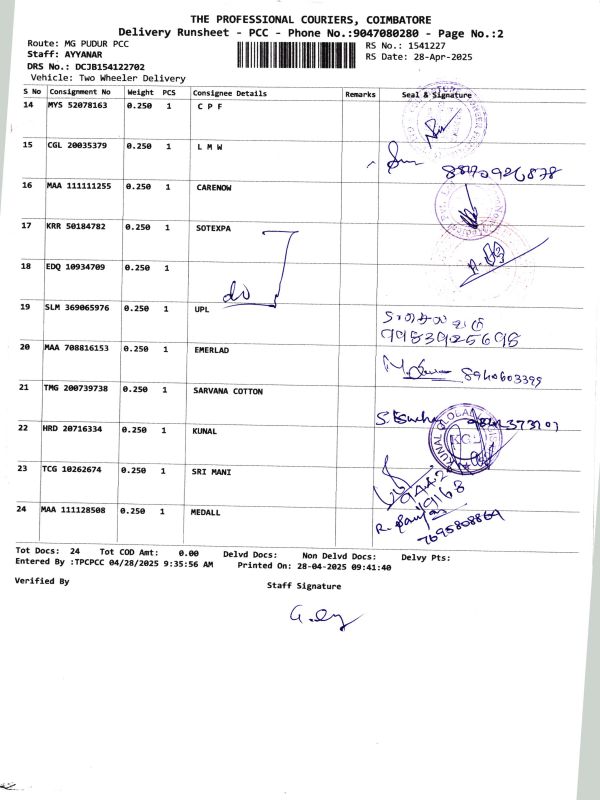 THE PROFESSIONAL COURIERS, COIMBATORE
Delivery Runsheet - PCC - Phone No.:9047080280 - Page No.:2
Route: MG PUDUR PCC
RS No.: 1541227
Staff: AYYANAR
RS Date: 28-Apr-2025
DRS No.: DCJB154122702
Vehicle: Two Wheeler Delivery
S No Consignment No Weight PCS Consignee Details Remarks Seal & Signature
14 MYS 52078163 0.250 1 C P F
15 CGL 20035379 0.250 1 L M W
16 MAA 111111255 0.250 1 CARENOW
17 KRR 50184782 0.250 1 SOTEXPA
18 EDQ 10934709 0.250 1
do
19 SLM 369065976 0.250 1 UPL
9983925698
20 MAA 708816153 0.250 1 EMERLAD
8940603399
21 TMG 200739738 0.250 1 SARVANA COTTON
22 HRD 20716334 0.250 1 KUNAL
23 TCG 10262674 0.250 1 SRI MANI
24 MAA 111128508 0.250 1 MEDALL
7695808864
Tot Docs: 24 Tot COD Amt: 0.00 Delvd Docs: Non Delvd Docs: Delvy Pts:
Entered By :TPCPCC 04/28/2025 9:35:56 AM Printed On: 28-04-2025 09:41:40
Verified By
Staff Signature